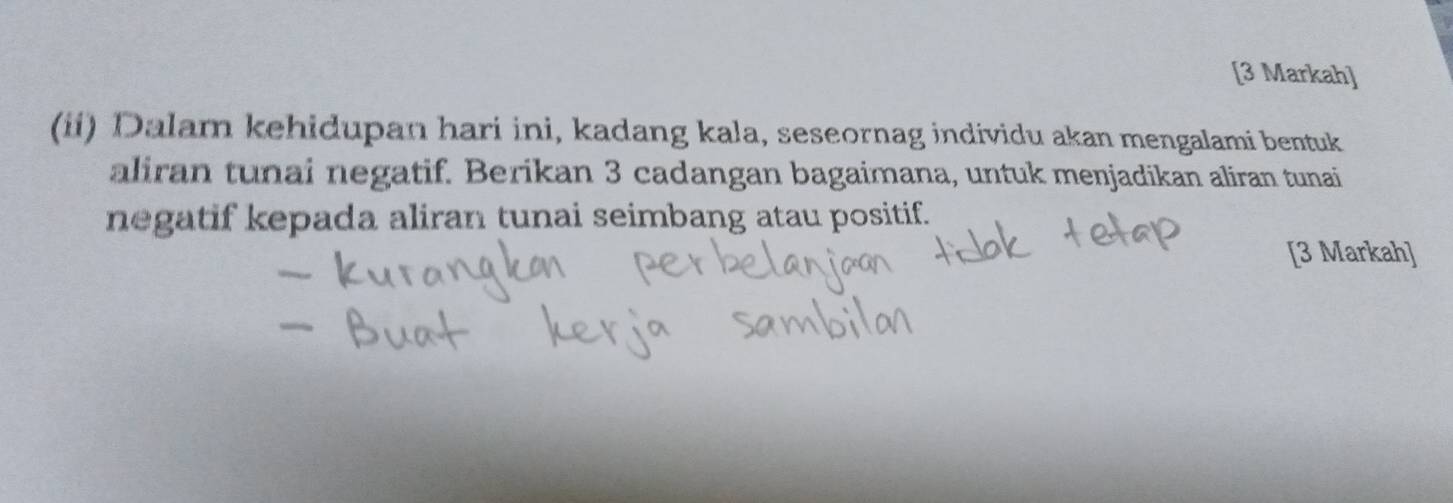 [3 Markah]
(ii) Dalam kehidupan hari ini, kadang kala, seseornag individu akan mengalami bentuk
aliran tunai negatif. Berikan 3 cadangan bagaimana, untuk menjadikan aliran tunai
negatif kepada aliran tunai seimbang atau positif.
[3 Markah]
- Kurangkan perbelanjaan tidak tetap
- Buat kerja sambilan